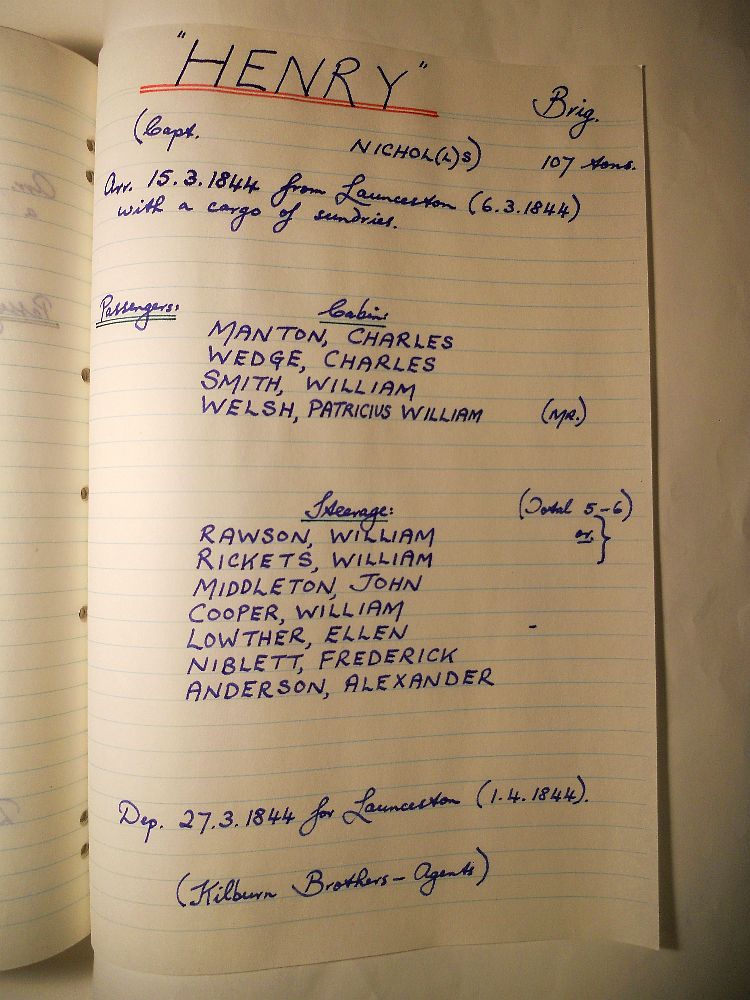 "HENRY"
Brig.
(Capt. NICHOL(L)S) 107 tons.
Arr. 15.3.1844 from Launceston (6.3.1844)
with a cargo of sundries.
Passengers: Cabin:
MANTON, CHARLES
WEDGE, CHARLES
SMITH, WILLIAM
WELSH, PATRICIUS WILLIAM (MR.)
Steerage: (Total 5-6)
RAWSON, WILLIAM or }
RICKETS, WILLIAM
MIDDLETON, JOHN
COOPER, WILLIAM
LOWTHER, ELLEN -
NIBLETT, FREDERICK
ANDERSON, ALEXANDER
Dep. 27.3.1844 for Launceston (1.4.1844).
(Kilburn Brothers - Agents)